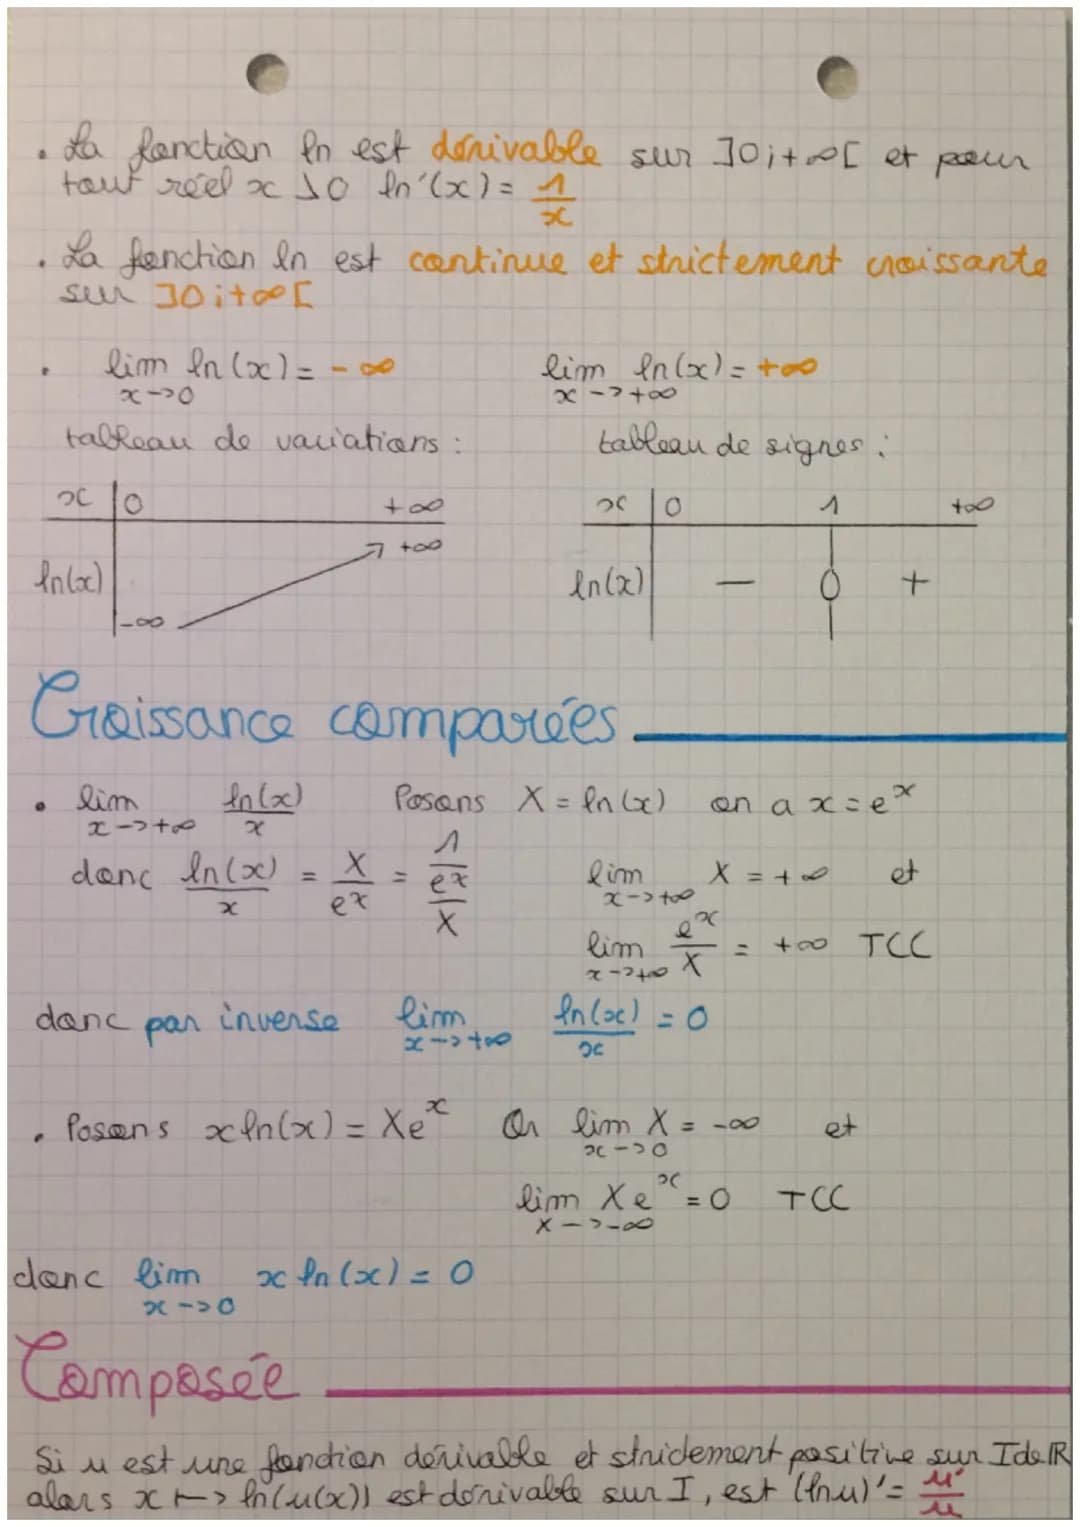 . La fonction ln est dérivable sur ]0;+∞[ et pour
tout réel x > 0 ln'(x) = 1/x
. La fonction ln est continue et strictement croissante
sur ]0;+∞[
. lim ln(x) = -∞ lim ln(x) = +∞
x->0 x->+∞
tableau de variations : tableau de signes :
x | 0 +∞ x | 0 1 +∞
+∞
ln(x) ln(x) — 0 +
-∞
Croissance comparées
. lim ln(x)/x Posons X = ln(x) on a x = e^x
x->+∞
donc ln(x)/x = X/e^x = 1/(e^x/X) lim X = +∞ et
x->+∞
lim e^x/X = +∞ TCC
x->+∞
donc par inverse lim ln(x)/x = 0
x->+∞
. Posons x ln(x) = Xe^x Or lim X = -∞ et
x->0
lim Xe^x = 0 TCC
X->-∞
donc lim x ln(x) = 0
x->0
Composée
Si u est une fonction dérivable et strictement positive sur I de IR
alors x ↦ ln(u(x)) est dérivable sur I, est (ln u)' = u'/u